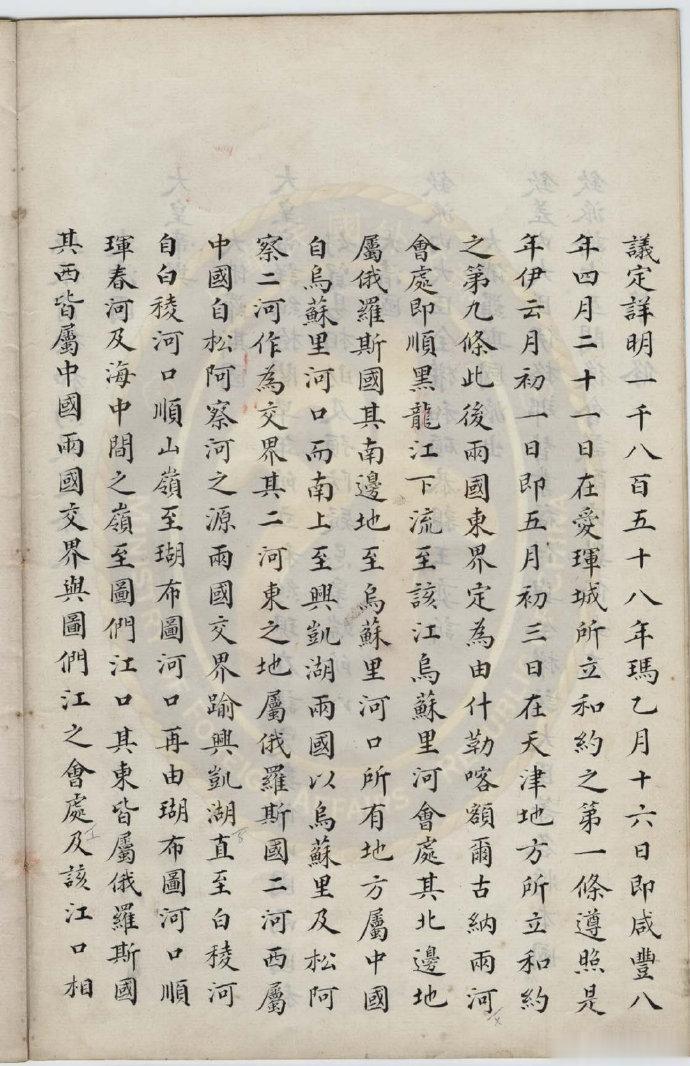 議定詳明一千八百五十八年瑪乙月十六日即咸豐八
年四月二十一日在愛琿城所立和約之第一條遵照是
年伊云月初一日即五月初三日在天津地方所立和約
之第九條此後兩國東界定為由什勒喀額爾古納兩河
會處即順黑龍江下流至該江烏蘇里河會處其北邊地
屬俄羅斯國其南邊地至烏蘇里河口所有地方屬中國
自烏蘇里河口而南上至興凱湖兩國以烏蘇里及松阿
察二河作為交界其二河東之地屬俄羅斯國二河西屬
中國自松阿察河之源兩國交界踰興凱湖直至白稜河
自白稜河口順山嶺至瑚布圖河口再由瑚布圖河口順
琿春河及海中間之嶺至圖們江口其東皆屬俄羅斯國
其西皆屬中國兩國交界與圖們江之會處及該江口相